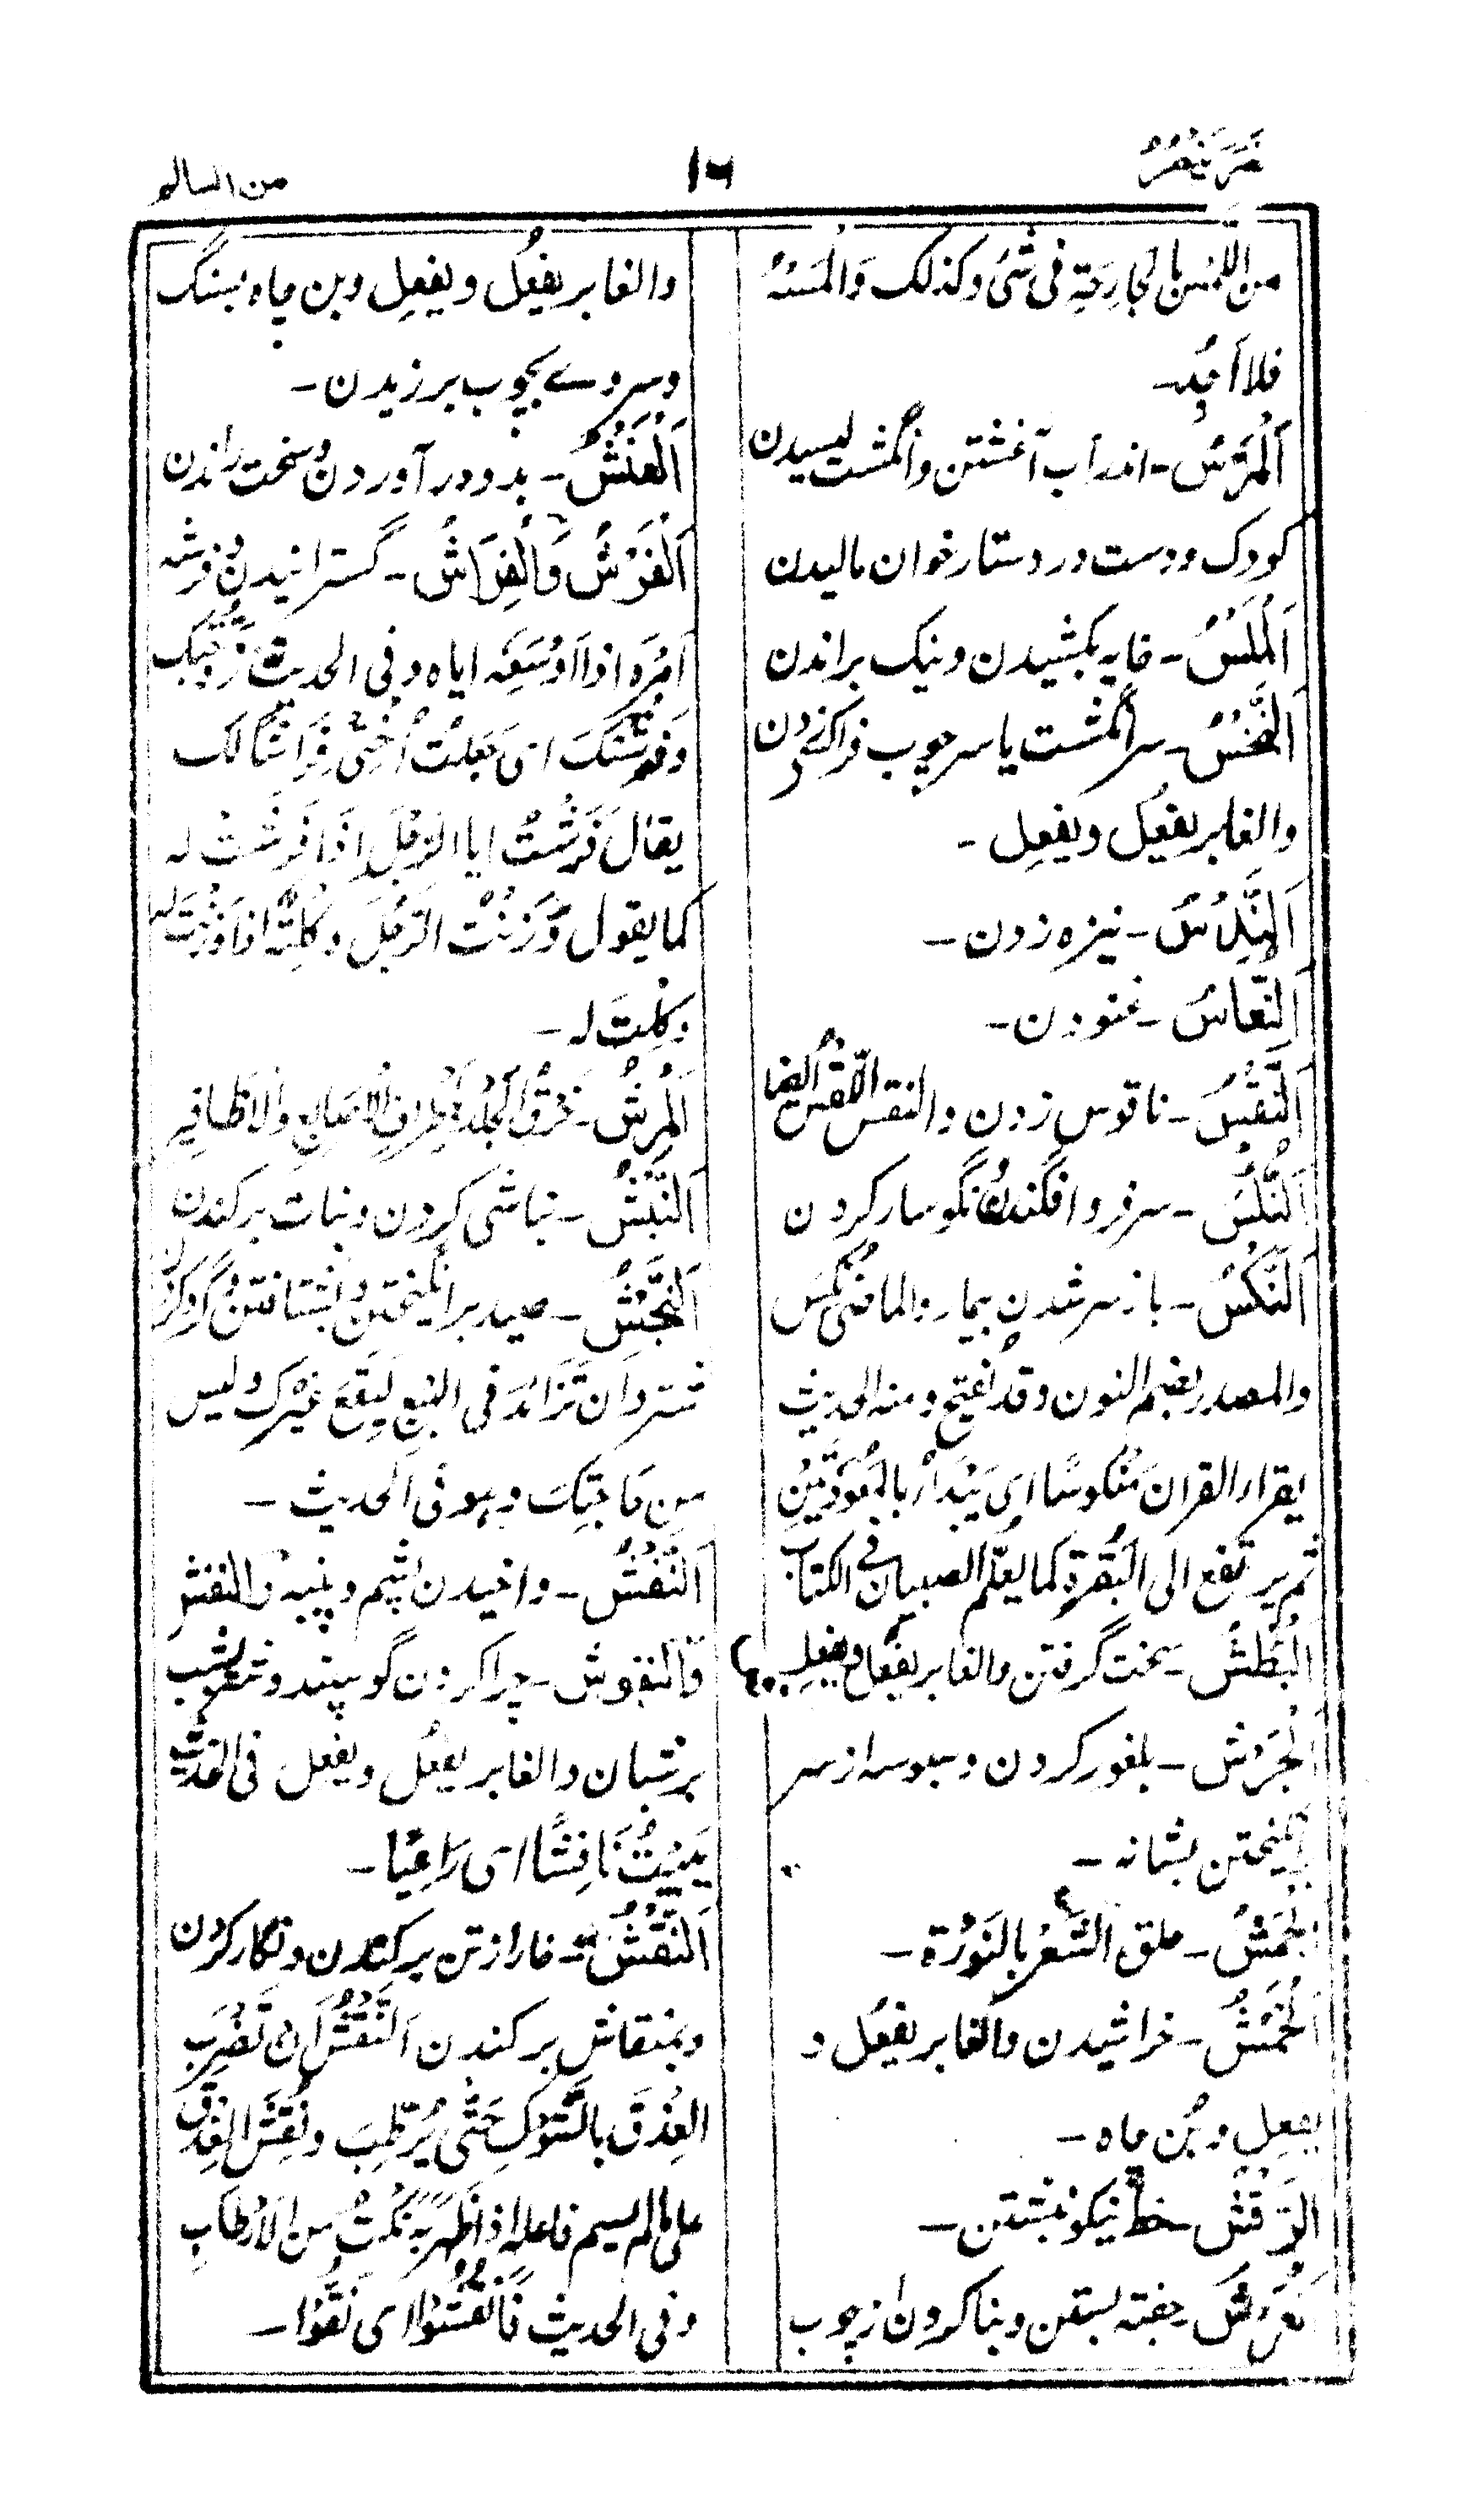 نَصَرَ يَنْصُرُ
۱۶
من السالم
من اللمس بالجارحة فی شئ وكذلك وَالْمَسْهُ
فلا أجِد۔
اَلْمَرْسُ۔ اندر آب آغشتن و انگشت لیسیدن
کودک و دست در دستار خوان مالیدن
اَلْمَلْسُ۔ خایه بکشیدن و نیک براندن
اَلنَّخْسُ۔ سر انگشت یا سر چوب فرا کسی زدن
والغابر یفعُل ویفعِل۔
نیزه زدن۔
اَلنُّعَاسُ۔ غنودن۔
اَلنَّقْسُ۔ ناقوس زدن والنقس ایضا
اَلنَّكْسُ۔ سر فرو افگندن و نگوسار کردن
اَلنُّكْسُ۔ باز سر شدن بیمار والماضی نُكِسَ
والمصدر بضم النون وقد تفتح ومنه الحدیث
یقرأ القرآن مَنْكُوسًا ای یَبْدَأ بالمُعَوَّذَتَیْنِ
ثم یرتفع الی البَقَرَة كما یعلّم الصبیان فی الكتاب
اَلْبَطْشُ۔ سخت گرفتن والغابر یفعُل ویفعِل
اَلْجَرْشُ۔ بلغور کردن و سبوسه از سر
انگیختن بشانه۔
اَلْجَمْشُ۔ حلق الشعر بالنَوْرَة۔
اَلْخَمْشُ۔ خراشیدن والغابر یفعُل و
یفعِل و بُن چاه۔
اَلرَّقْشُ۔ خط نیکو نبشتن۔
اَلْعَرْشُ۔ جفته بستن و بنا کردن از چوب
والغابر یفعُل ویفعِل و بن چاه بسنگ
و سر وے بچوب برزیدن۔
بدو در آوردن و سخت راندن
اَلْفَرْشُ وَالْفِرَاشُ۔ گسترانیدن و فرشه
اَمْرَه اذا اوسَعه ایاه وفی الحدیث زوّجتک
وفرشتک ای جعلتُ أختی فِرَاشًا لک
یقال فَرَشْتُ ایا الرجلَ اذا فَرَشْتَ له
كما یقول وَزَنْتُ الرجُلَ وكِلْتُه اذا وزنتَ له
وكِلْتَ له۔
اَلْمَرْشُ۔ خَرْقُ الجلد باطراف الاصابع والاظافیر
اَلنَّبْشُ۔ نباشی کردن و نبات برکندن
اَلنَّجْشُ۔ صید برانگیختن و بشتافتن و گرد کردن
ان تزائد فی البیع لیقعَ غیرُک ولیس
من حاجتِک وهو فی الحدیث۔
اَلنَّفْشُ۔ واخیدن پشم و پنبه والنفش
والنفوش۔ چرا کردن گوسپند و شتر بشب
بی شبان والغابر یفعُل ویفعِل فی الحدیث
یَبِیْتُ نَافِشًا ای رَاعِیًا۔
اَلنَّقْشُ۔ خار از تن برکندن و نگار کردن
و بمنقاش برکندن اَلنَّقْشُ أن تَضْرِبَ
العِذْقَ بالشوکِ حَتّٰی یُرَطِّبَ ونُقِشَ العِذْق
علی مالم یسم فاعله اذا ظهر به نُكَتٌ من الارطاب
وفی الحدیث فانقشوا ای نَقُّوا۔